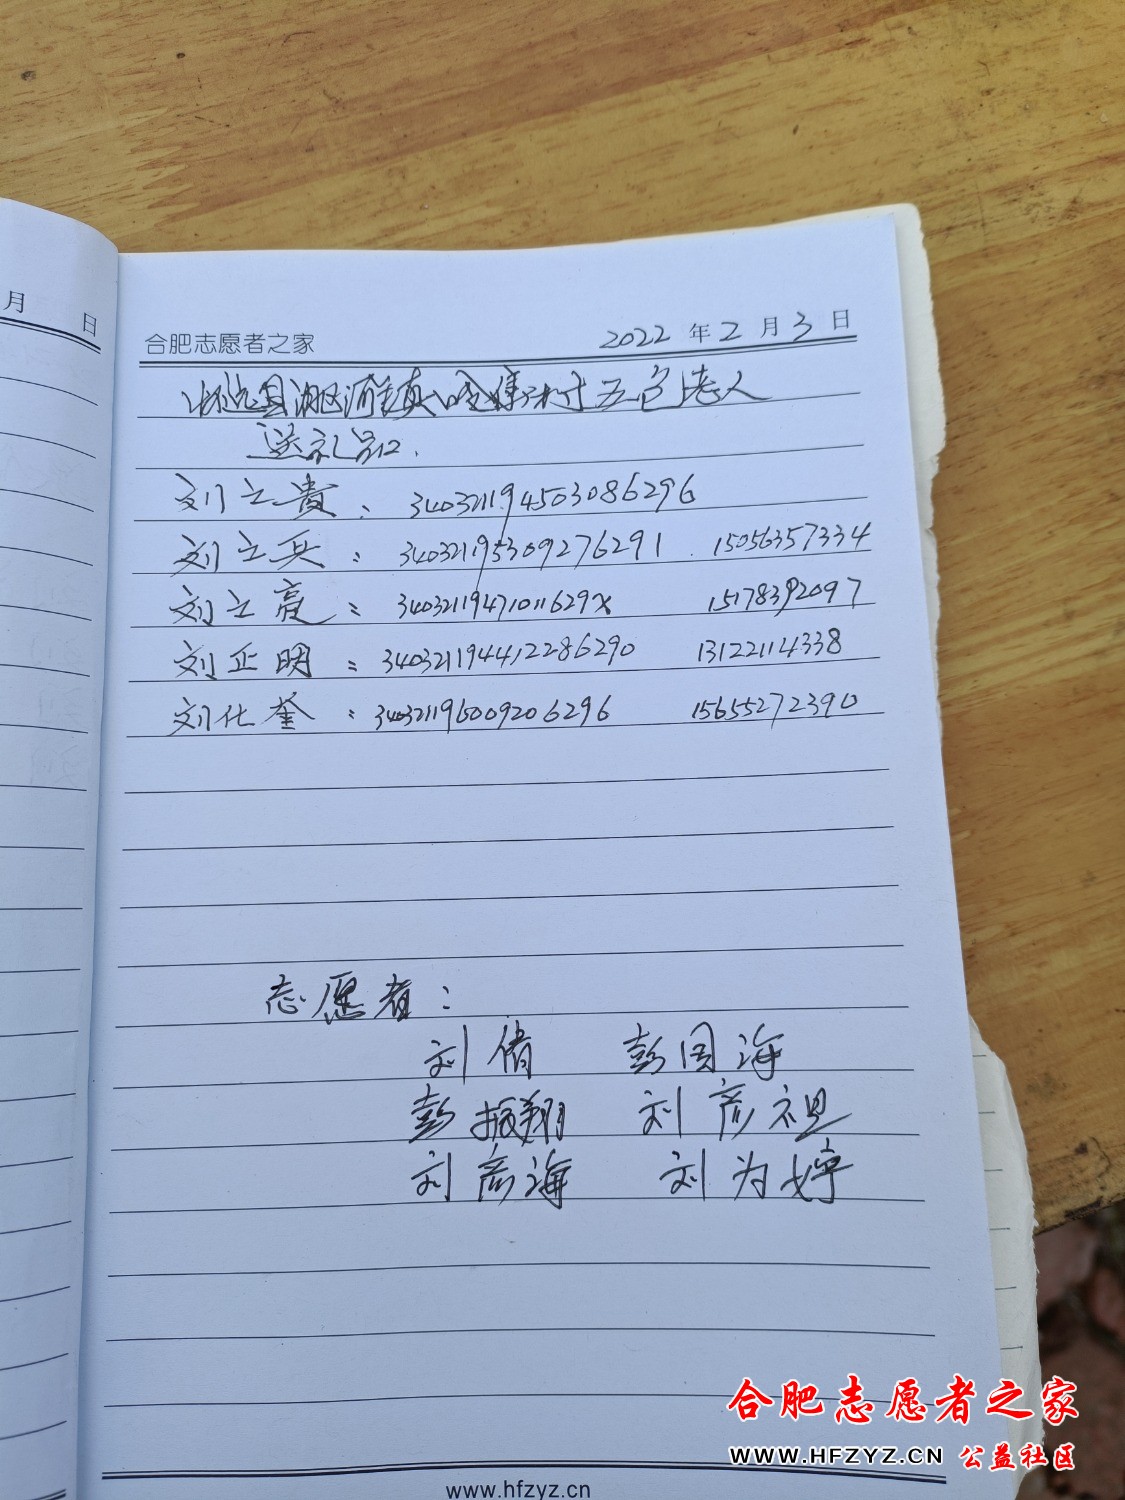 月 日
合肥志愿者之家 2022 年 2 月 3 日
怀远县 河镇 村五 老人
送礼品.
刘立贵: 340321194503086296
刘立兵: 340321195309276291 15056357334
刘立亮: 34032119471011629X 15178392097
刘正明: 340321194412286290 13122114338
刘化奎: 340321195009206296 15655272390
志愿者:
刘倩 彭国海
彭振翔 刘彦祖
刘彦海 刘为婷
www.hfzyz.cn
合肥志愿者之家
WWW.HFZYZ.CN 公益社区